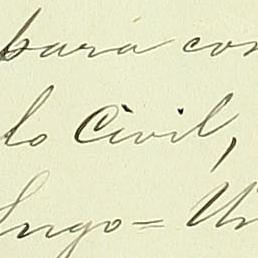 bara con
lo Civil,
Lugo=Un